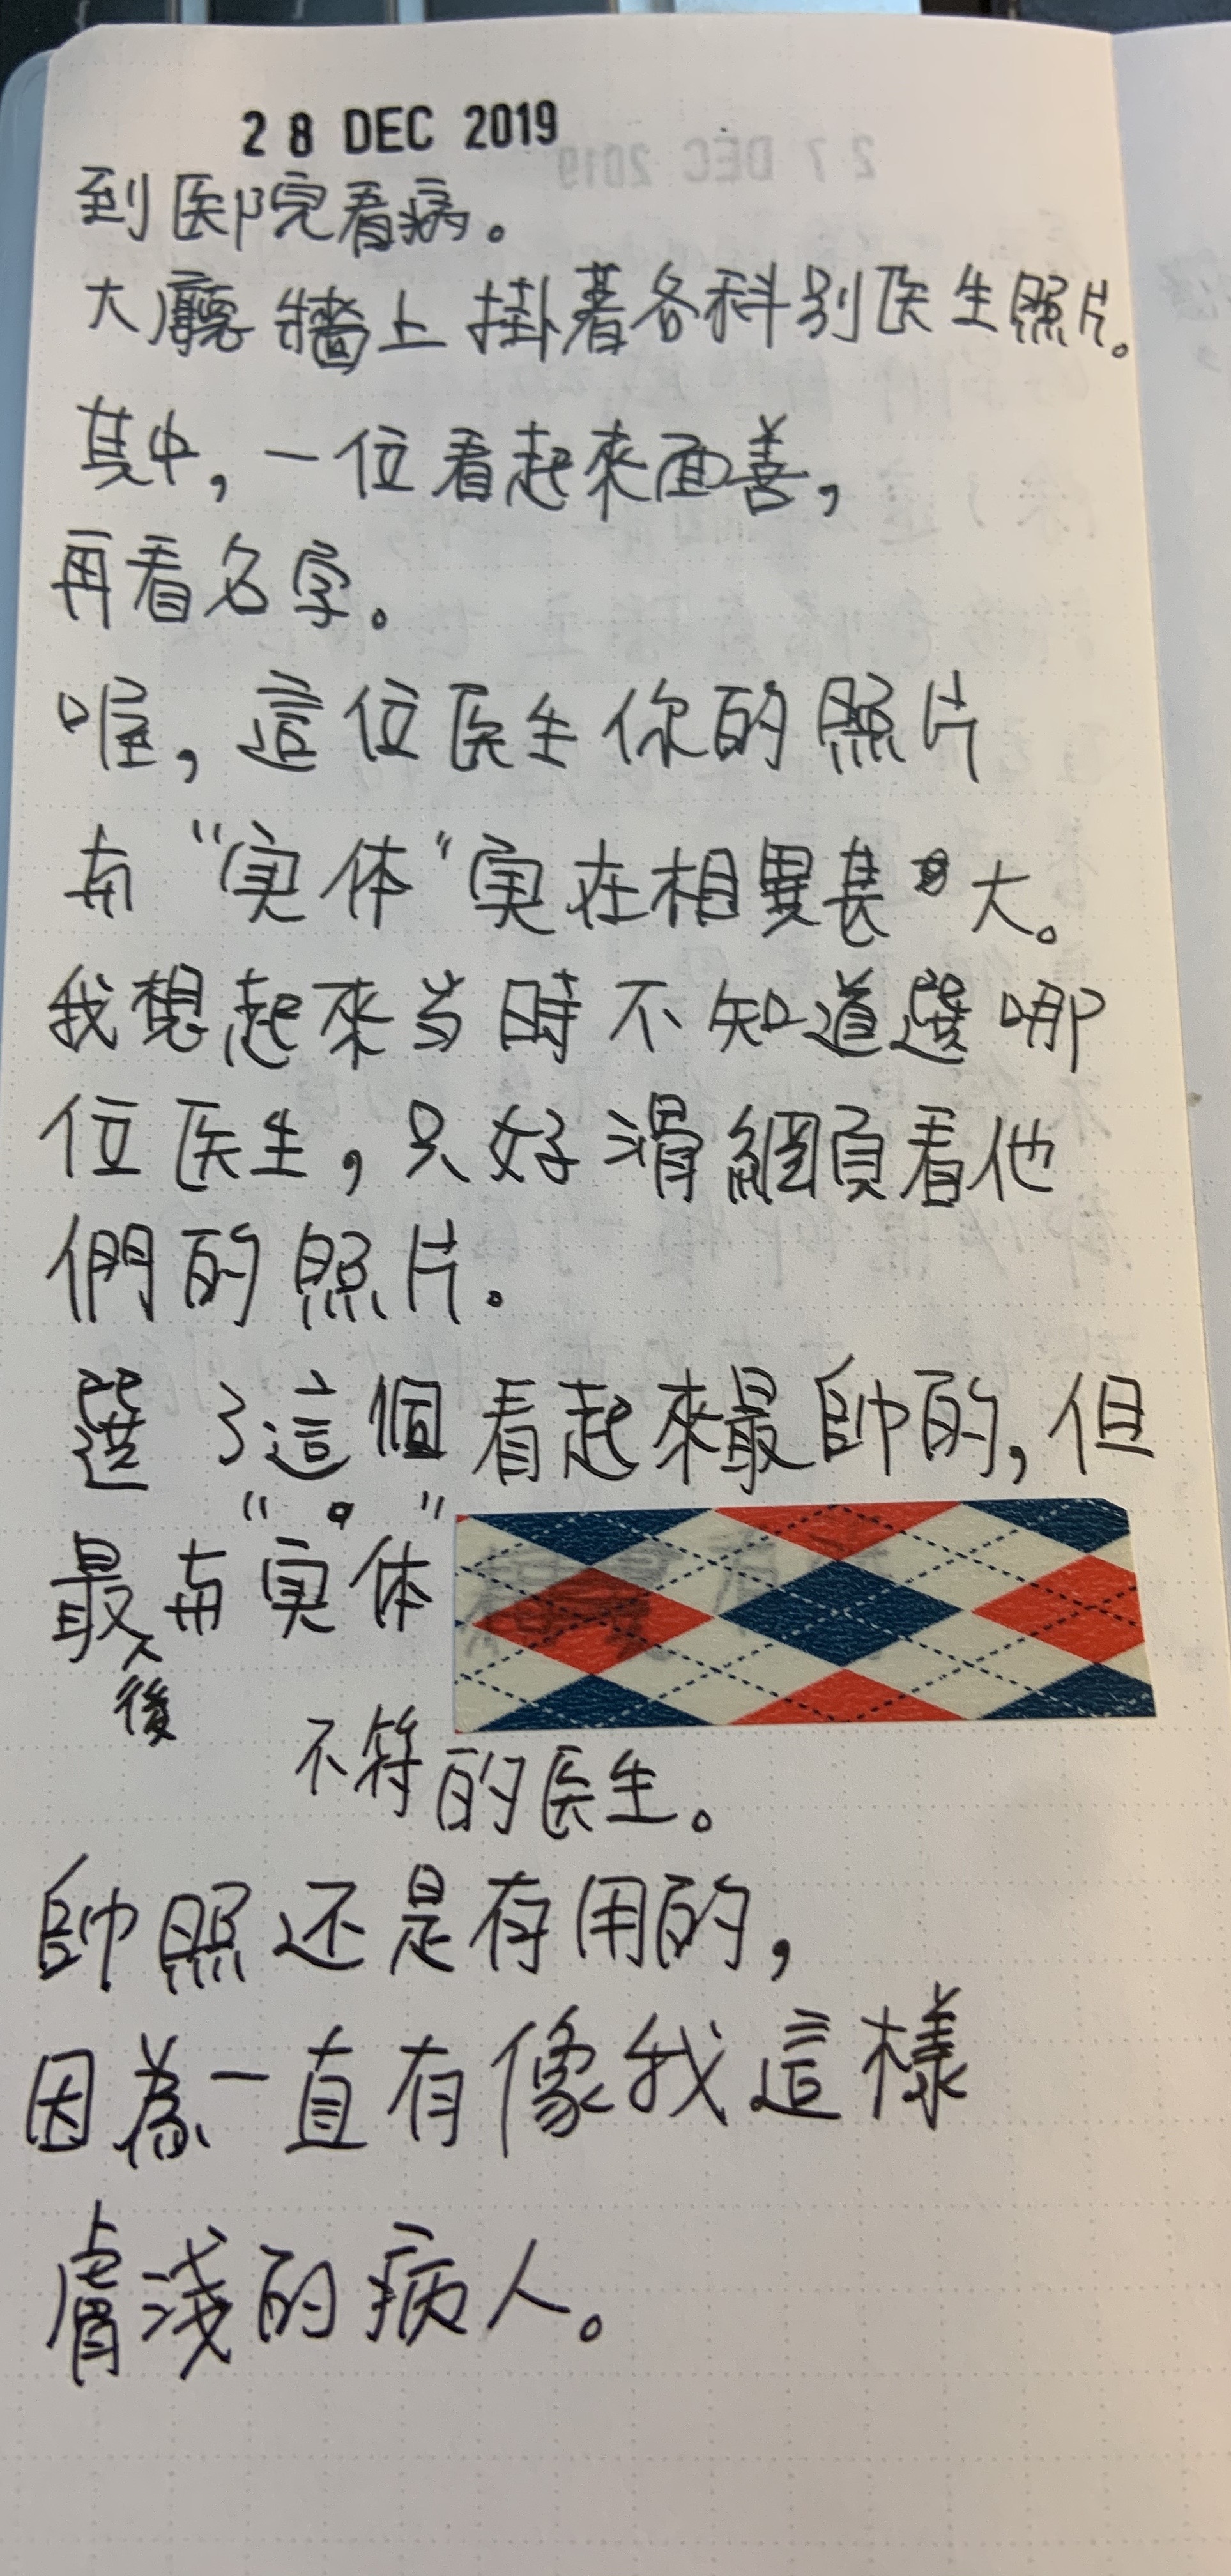 28 DEC 2019
到医院看病。
大廳牆上掛著各科別医生照片。
其中，一位看起來面善，
再看名字。
喔，這位医生你的照片
与“実体”実在相異甚大。
我想起來当時不知道選哪
位医生，只好滑網頁看他
們的照片。
選了這個看起來最帥的，但
最後与“実体”
不符的医生。
帥照还是有用的，
因為一直有像我這樣
膚淺的病人。
27 DEC 2019